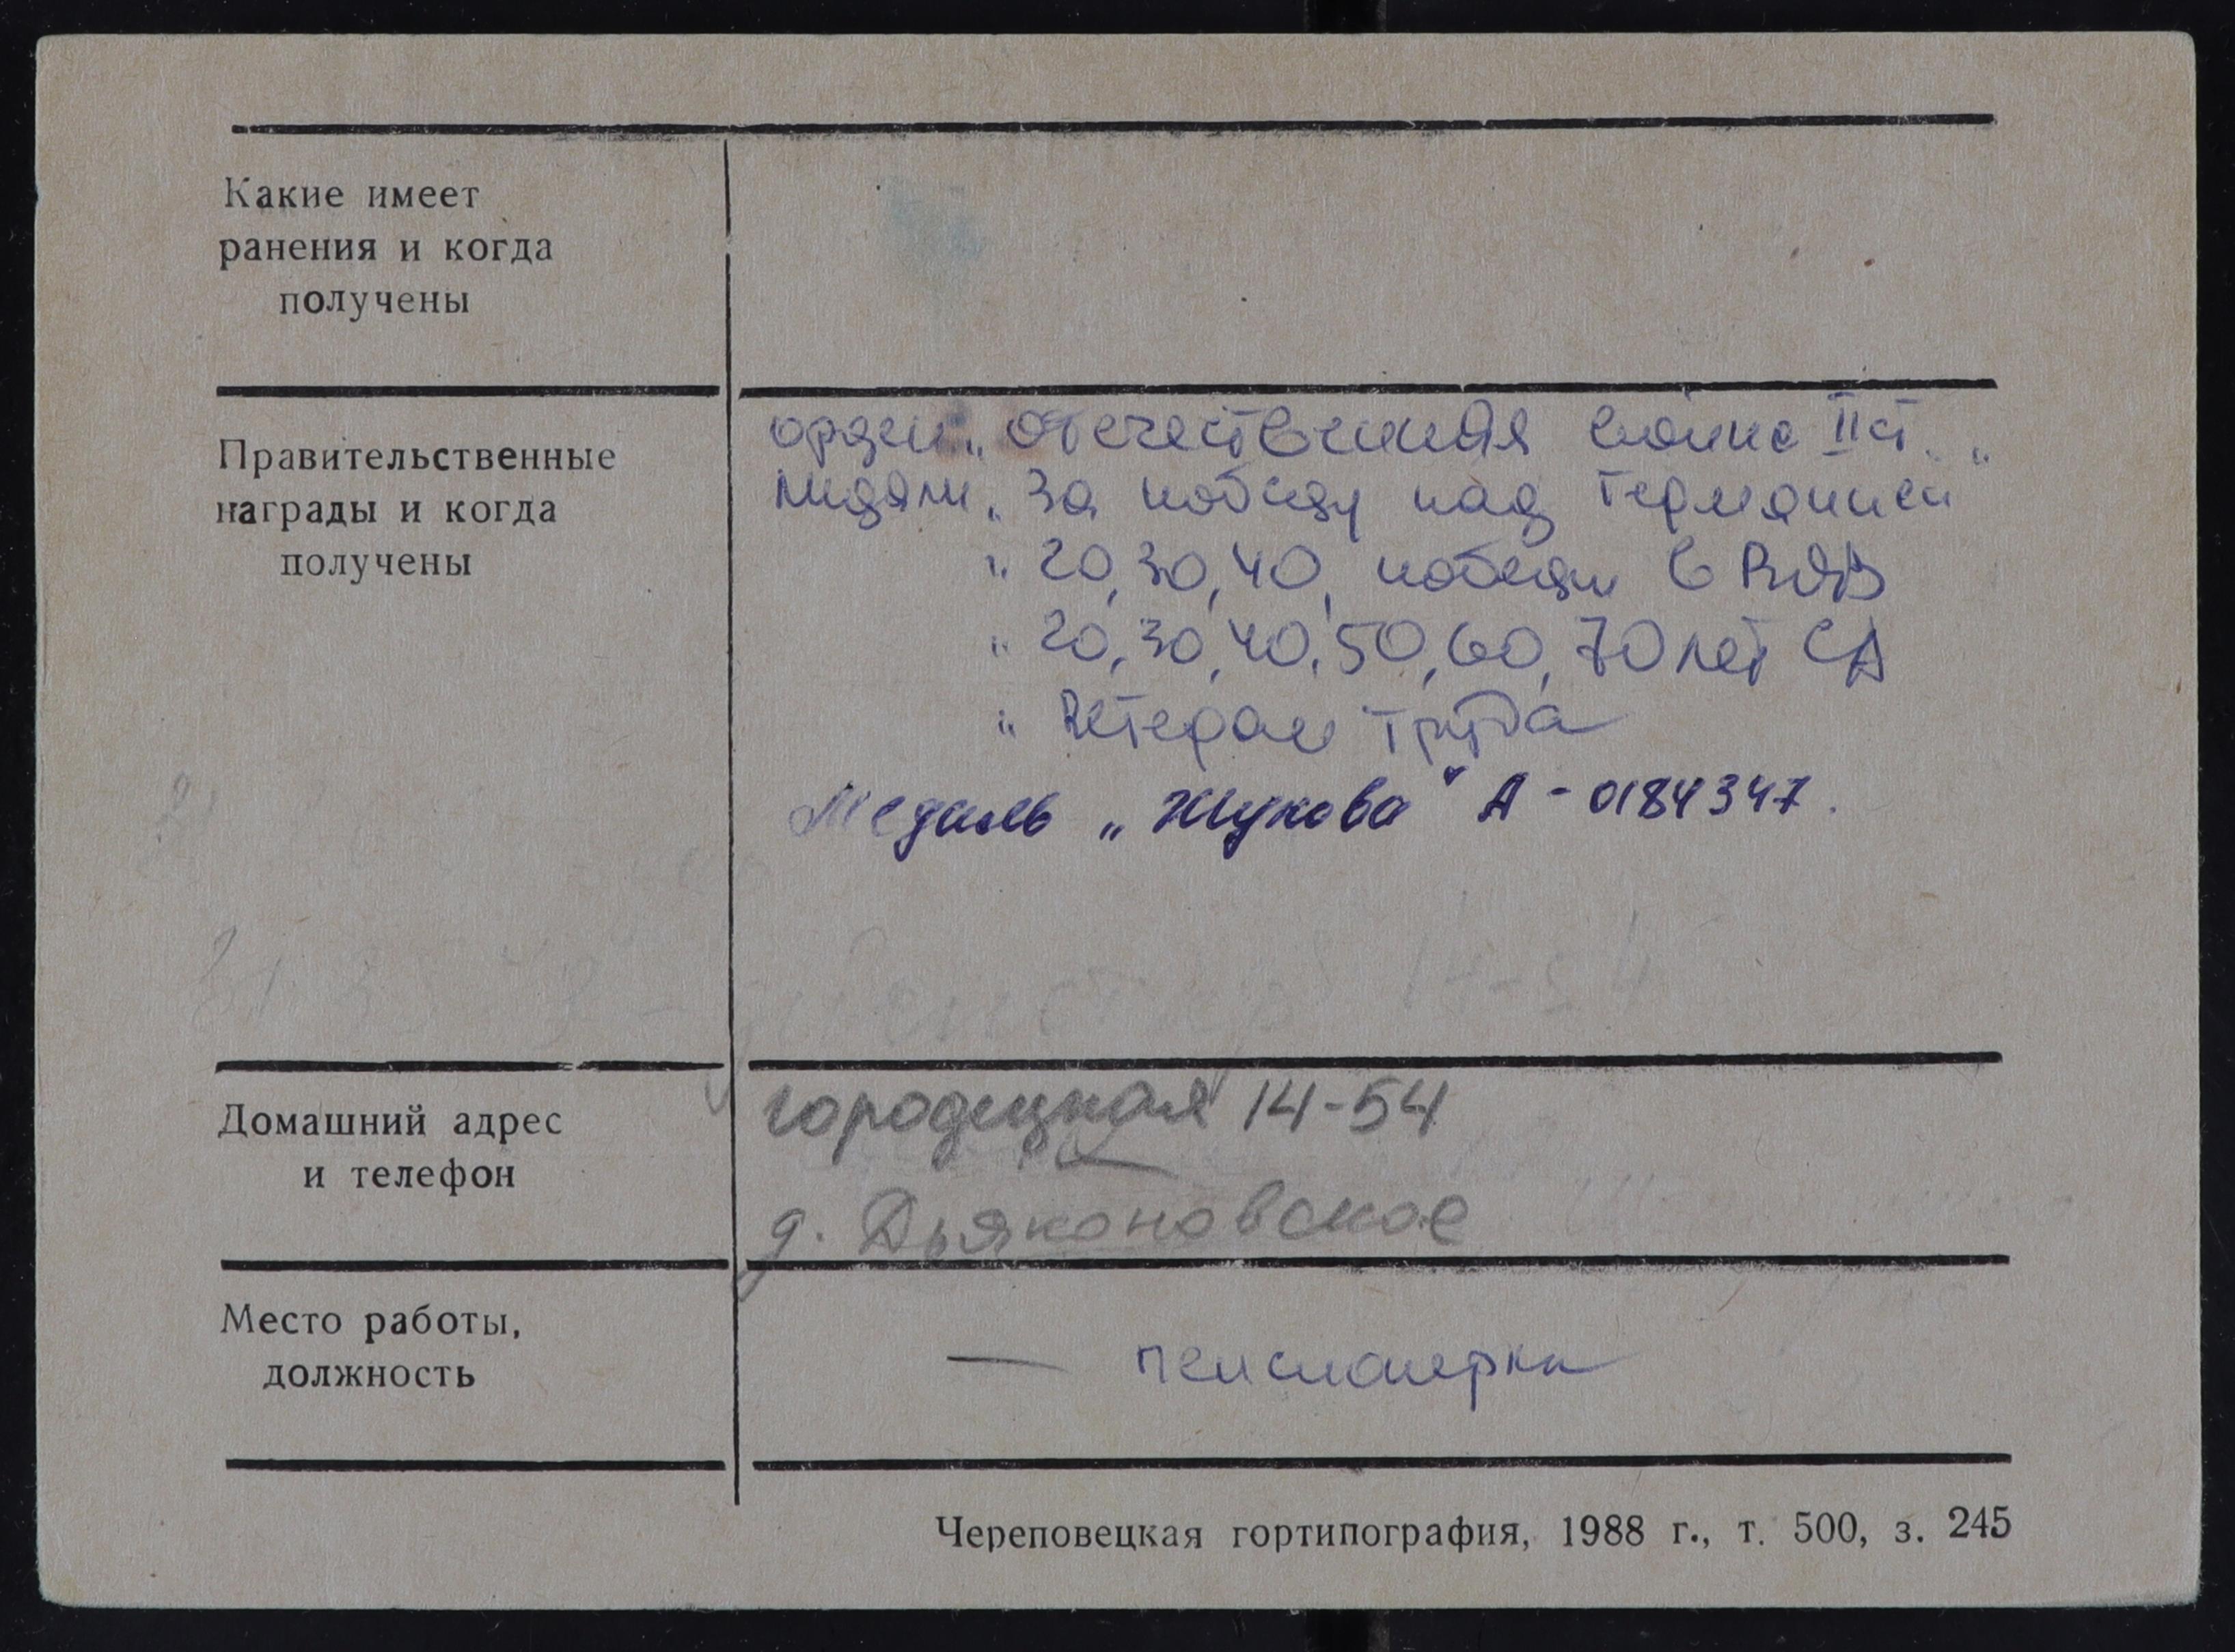 Какие имеет
ранения и когда
получены
Правительственные
награды и когда
получены
орден „Отечественная война II ст.„
медали „За победу над Германией
„ 20, 30, 40, победы в ВОВ
„ 20, 30, 40, 50, 60, 70 лет СА
„ Ветеран труда
Медаль „Жукова" А - 0184347.
Домашний адрес
и телефон
городецкая 14-54
д. Дьяконовское
Место работы,
должность
— пенсионерка
Череповецкая гортипография, 1988 г., т. 500, з. 245